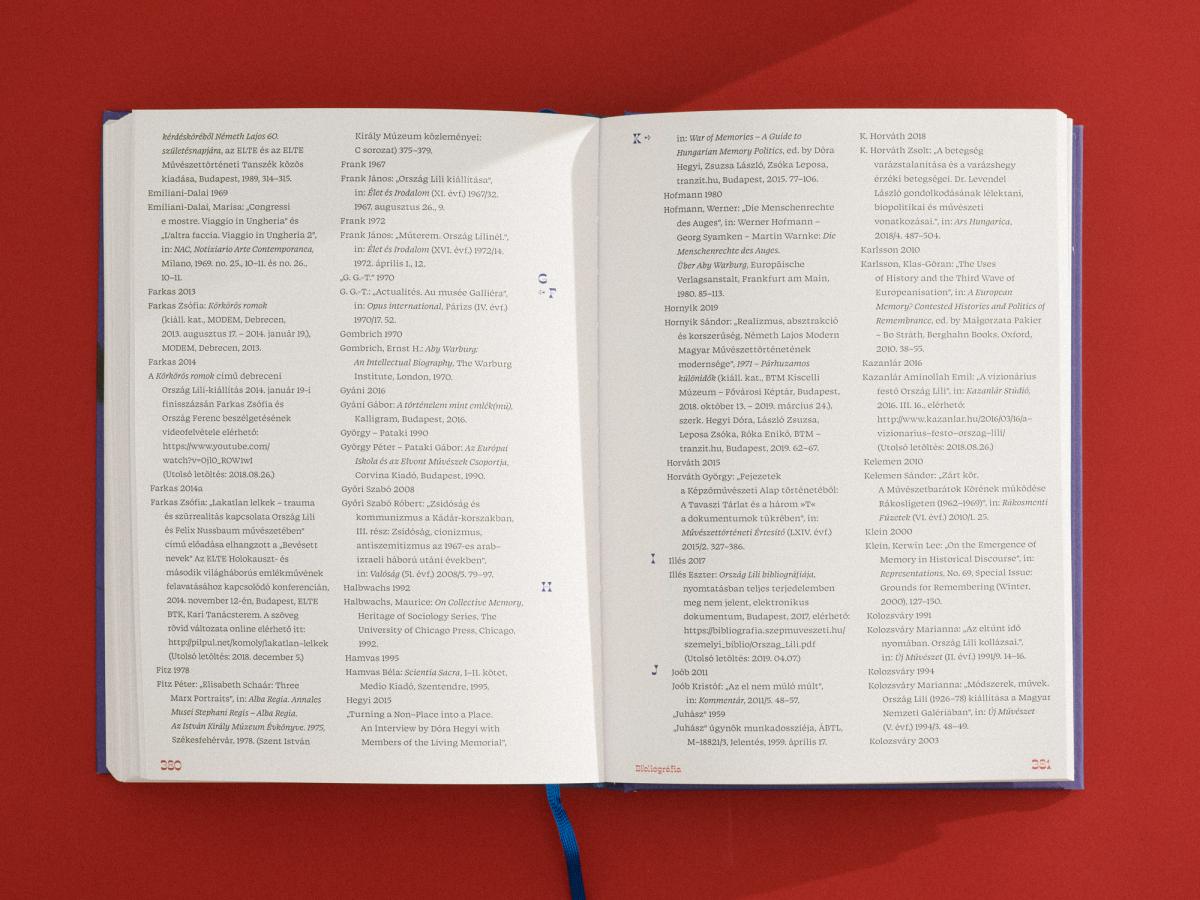 kérdésköréből Németh Lajos 60.
születésnapjára, az ELTE és az ELTE
Művészettörténeti Tanszék közös
kiadása, Budapest, 1989, 314–315.
Emiliani-Dalai 1969
Emiliani-Dalai, Marisa: „Congressi
e mostre. Viaggio in Ungheria” és
„L'altra faccia. Viaggio in Ungheria 2”,
in: NAC, Notiziario Arte Contemporanca,
Milano, 1969. no. 25., 10–11. és no. 26.,
10–11.
Farkas 2013
Farkas Zsófia: Körkörös romok
(kiáll. kat., MODEM, Debrecen,
2013. augusztus 17. – 2014. január 19.),
MODEM, Debrecen, 2013.
Farkas 2014
A Körkörös romok című debreceni
Ország Lili-kiállítás 2014. január 19-i
finisszázsán Farkas Zsófia és
Ország Ferenc beszélgetésének
videofelvétele elérhető:
https://www.youtube.com/
watch?v=0jl0_ROW1wI
(Utolsó letöltés: 2018.08.26.)
Farkas 2014a
Farkas Zsófia: „Lakatlan lelkek – trauma
és szürrealitás kapcsolata Ország Lili
és Felix Nussbaum művészetében”
című előadása elhangzott a „Bevésett
nevek” Az ELTE Holokauszt- és
második világháborús emlékművének
felavatásához kapcsolódó konferencián,
2014. november 12-én, Budapest, ELTE
BTK, Kari Tanácsterem. A szöveg
rövid változata online elérhető itt:
http://pilpul.net/komoly/lakatlan-lelkek
(Utolsó letöltés: 2018. december 5.)
Fitz 1978
Fitz Péter: „Elisabeth Schaár: Three
Marx Portraits”, in: Alba Regia. Annales
Musei Stephani Regis – Alba Regia.
Az István Király Múzeum Évkönyve. 1975,
Székesfehérvár, 1978. (Szent István
380
Király Múzeum közleményei:
C sorozat) 375–379.
Frank 1967
Frank János: „Ország Lili kiállítása”,
in: Élet és Irodalom (XI. évf.) 1967/32.
1967. augusztus 26., 9.
Frank 1972
Frank János: „Műterem. Ország Lilinél.”,
in: Élet és Irodalom (XVI. évf.) 1972/14.
1972. április 1., 12.
„G. G.-T.” 1970
G. G.-T.: „Actualités. Au musée Galliéra”,
in: Opus international, Párizs (IV. évf.)
1970/17. 52.
Gombrich 1970
Gombrich, Ernst H.: Aby Warburg:
An Intellectual Biography, The Warburg
Institute, London, 1970.
Gyáni 2016
Gyáni Gábor: A történelem mint emlék(mű),
Kalligram, Budapest, 2016.
György – Pataki 1990
György Péter – Pataki Gábor: Az Európai
Iskola és az Elvont Művészek Csoportja,
Corvina Kiadó, Budapest, 1990.
Győri Szabó 2008
Győri Szabó Róbert: „Zsidóság és
kommunizmus a Kádár-korszakban,
III. rész: Zsidóság, cionizmus,
antiszemitizmus az 1967-es arab–
izraeli háború utáni években”,
in: Valóság (51. évf.) 2008/5. 79–97.
Halbwachs 1992
Halbwachs, Maurice: On Collective Memory,
Heritage of Sociology Series, The
University of Chicago Press, Chicago,
1992.
Hamvas 1995
Hamvas Béla: Scientia Sacra, I–II. kötet,
Medio Kiadó, Szentendre, 1995.
Hegyi 2015
„Turning a Non-Place into a Place.
An Interview by Dóra Hegyi with
Members of the Living Memorial”,
G
F
H
K
in: War of Memories – A Guide to
Hungarian Memory Politics, ed. by Dóra
Hegyi, Zsuzsa László, Zsóka Leposa,
tranzit.hu, Budapest, 2015. 77–106.
Hofmann 1980
Hofmann, Werner: „Die Menschenrechte
des Auges”, in: Werner Hofmann –
Georg Syamken – Martin Warnke: Die
Menschenrechte des Auges.
Über Aby Warburg, Europäische
Verlagsanstalt, Frankfurt am Main,
1980. 85–113.
Hornyik 2019
Hornyik Sándor: „Realizmus, absztrakció
és korszerűség. Németh Lajos Modern
Magyar Művészettörténetének
modernsége”, 1971 – Párhuzamos
különidők (kiáll. kat., BTM Kiscelli
Múzeum – Fővárosi Képtár, Budapest,
2018. október 13. – 2019. március 24.),
szerk. Hegyi Dóra, László Zsuzsa,
Leposa Zsóka, Róka Enikő, BTM –
tranzit.hu, Budapest, 2019. 62–67.
Horváth 2015
Horváth György: „Fejezetek
a Képzőművészeti Alap történetéből:
A Tavaszi Tárlat és a három »T«
a dokumentumok tükrében”, in:
Művészettörténeti Értesítő (LXIV. évf.)
2015/2. 327–386.
I
Illés 2017
Illés Eszter: Ország Lili bibliográfiája,
nyomtatásban teljes terjedelemben
meg nem jelent, elektronikus
dokumentum, Budapest, 2017, elérhető:
https://bibliografia.szepmuveszeti.hu/
szemelyi_biblio/Orszag_Lili.pdf
(Utolsó letöltés: 2019. 04.07.)
J
Joób 2011
Joób Kristóf: „Az el nem múló múlt”,
in: Kommentár, 2011/5. 48–57.
„Juhász” 1959
„Juhász” ügynök munkadossziéja, ÁBTL,
M-18821/3, Jelentés, 1959. április 17.
Bibliográfia
K. Horváth 2018
K. Horváth Zsolt: „A betegség
varázstalanítása és a varázshegy
érzéki betegségei. Dr. Levendel
László gondolkodásának lélektani,
biopolitikai és művészeti
vonatkozásai.”, in: Ars Hungarica,
2018/4. 487–504.
Karlsson 2010
Karlsson, Klas-Göran: „The Uses
of History and the Third Wave of
Europeanisation”, in: A European
Memory? Contested Histories and Politics of
Remembrance, ed. by Małgorzata Pakier
– Bo Stråth, Berghahn Books, Oxford,
2010. 38–55.
Kazanlár 2016
Kazanlár Aminollah Emil: „A vizionárius
festő Ország Lili”, in: Kazanlár Stúdió,
2016. III. 16., elérhető:
http://www.kazanlar.hu/2016/03/16/a-
vizionarius-festo-orszag-lili/
(Utolsó letöltés: 2018.08.26.)
Kelemen 2010
Kelemen Sándor: „Zárt kör.
A Művészetbarátok Körének működése
Rákosligeten (1962–1969)”, in: Rákosmenti
Füzetek (VI. évf.) 2010/1. 25.
Klein 2000
Klein, Kerwin Lee: „On the Emergence of
Memory in Historical Discourse”, in:
Representations, No. 69, Special Issue:
Grounds for Remembering (Winter,
2000), 127–150.
Kolozsváry 1991
Kolozsváry Marianna: „Az eltűnt idő
nyomában. Ország Lili kollázsai.”,
in: Új Művészet (II. évf.) 1991/9. 14–16.
Kolozsváry 1994
Kolozsváry Marianna: „Módszerek, művek.
Ország Lili (1926–78) kiállítása a Magyar
Nemzeti Galériában”, in: Új Művészet
(V. évf.) 1994/3. 48–49.
Kolozsváry 2003
381